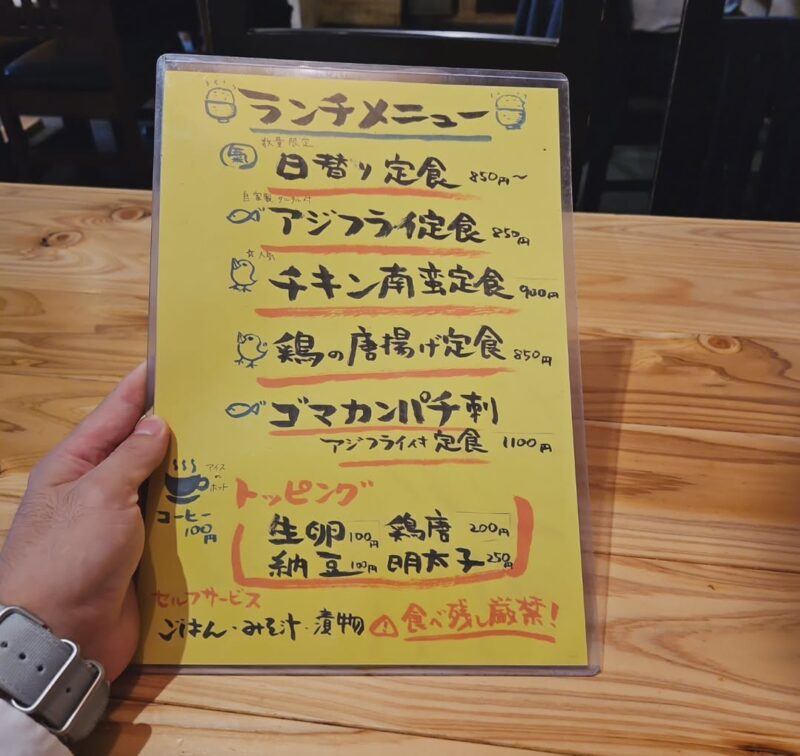 ランチメニュー
数量限定
日替り定食 850円〜
自家製タルタル付
アジフライ定食 850円
大人気
チキン南蛮定食 900円
鶏の唐揚げ定食 850円
ゴマカンパチ刺
アジフライ付定食 1100円
アイス
ホット
コーヒー
100円
トッピング
生卵 100円 鶏唐 200円
納豆 100円 明太子 250円
セルフサービス
ごはん・みそ汁・漬物 食べ残し厳禁!